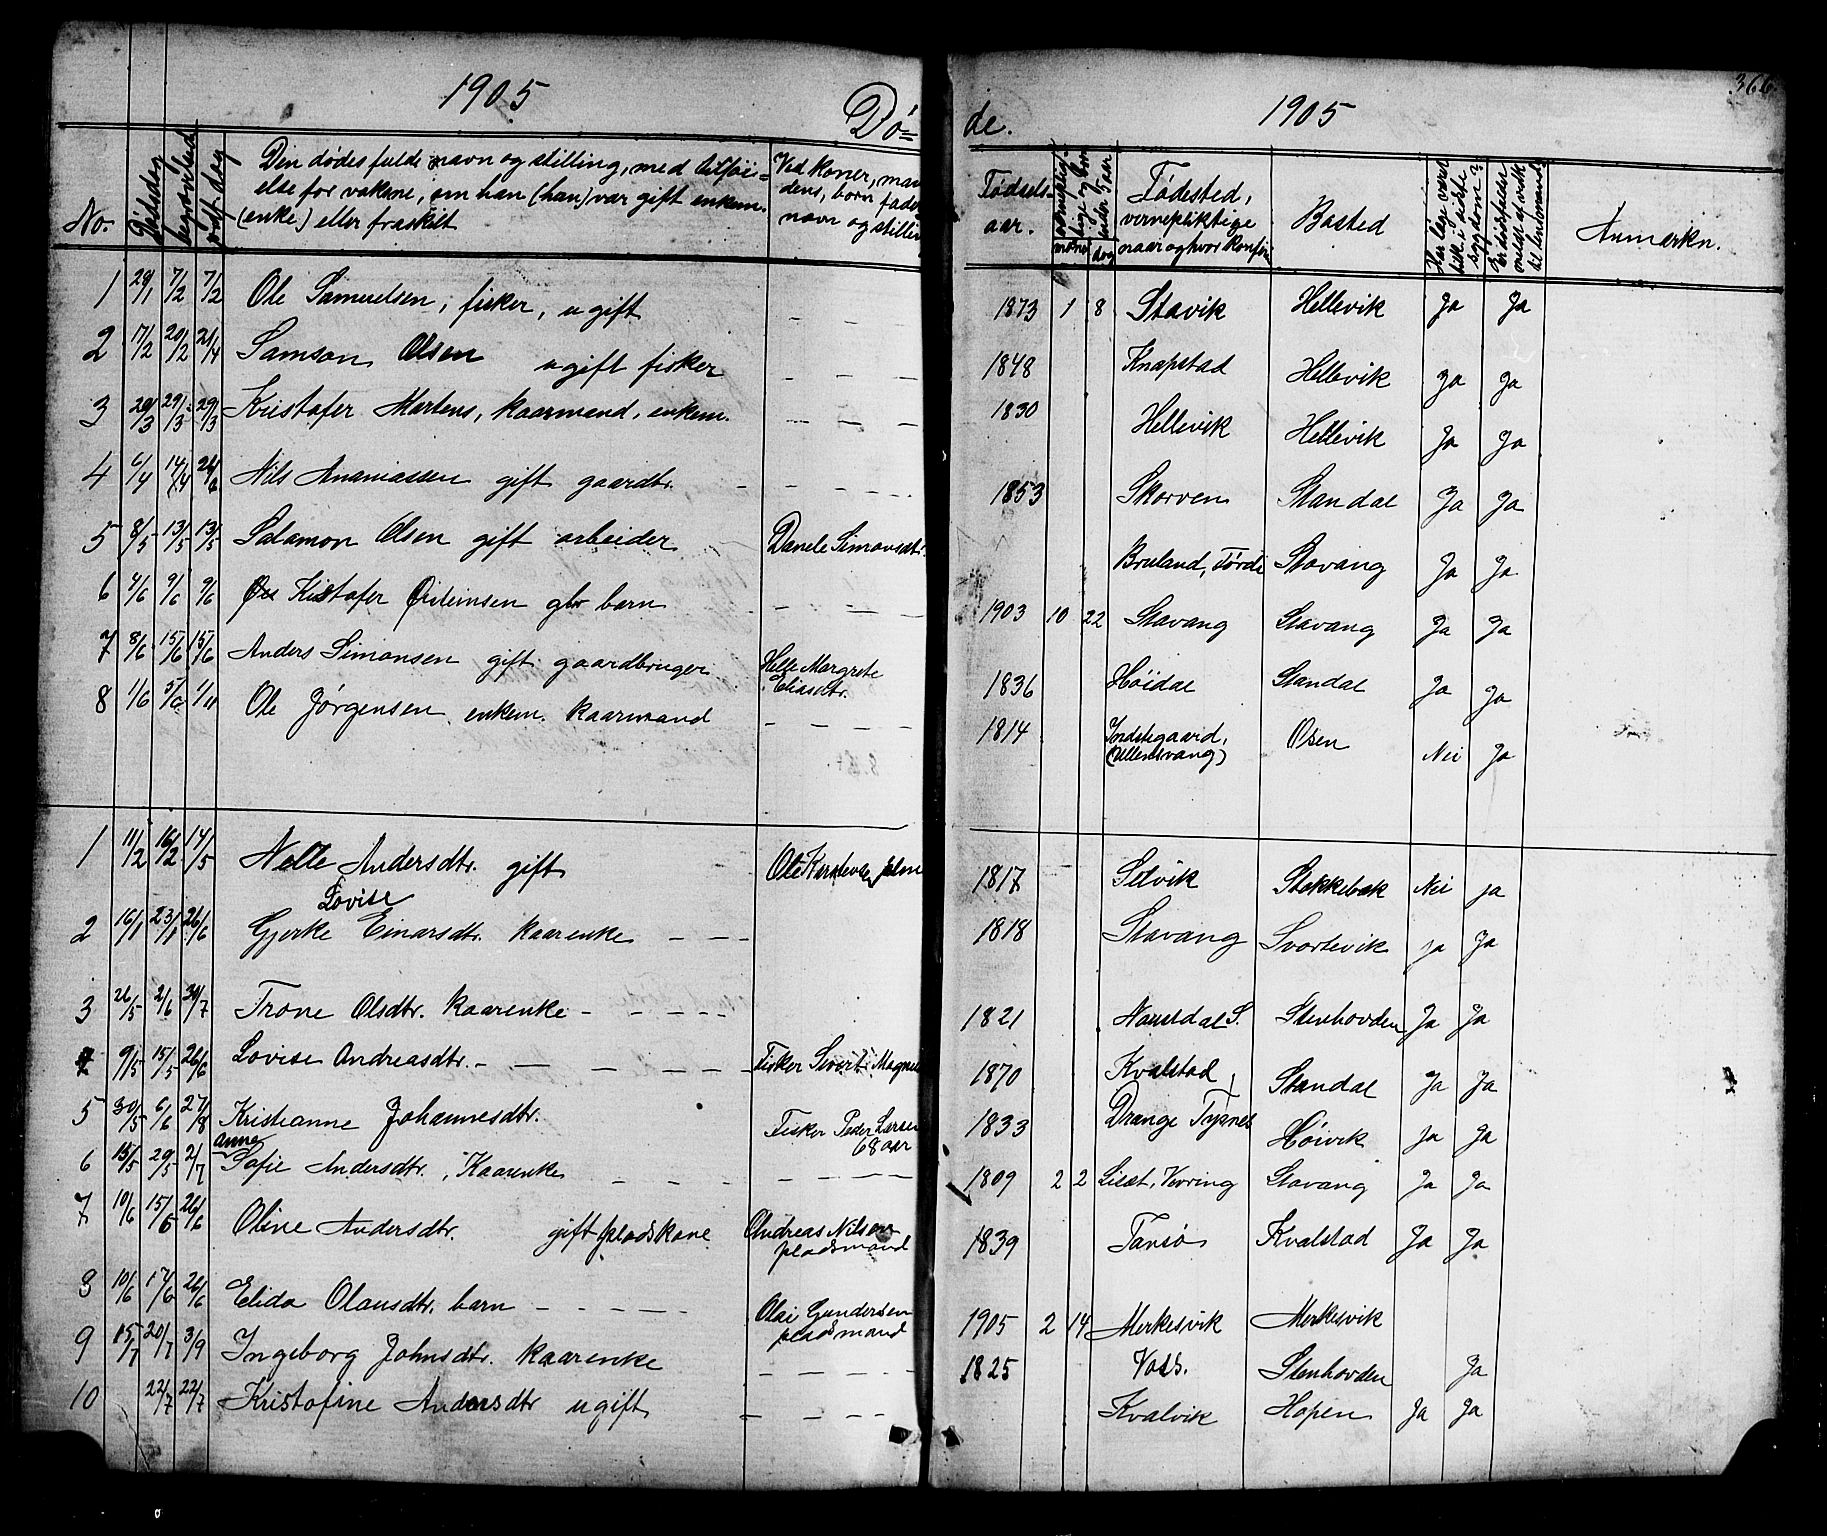 1905 Dø= de. 1905 366
No. Dødsdag begravelsed Den dødes fulde navn og stilling, med tilføi=
else for voksne, om han (hun) var gift enkem.
(enke) eller fraskilt
Ved koner, man
dens, børn fade
navn og stillin
Fødsels-
aar.
Fødested,
vernepliktige
naar og hvor konfir
Bosted
Anmærkn.
1 29/1 7/2 7/2 Ole Samuelsen, fisker, ugift - - - 1873 1 8 Stavik Hellevik Ja Ja
2 17/2 20/2 21/4 Samson Olsen ugift fisker - - - 1848 Knapstad Hellevik Ja Ja
3 29/3 29/3 Kristofer Martens, kaarmand, enkem. - - - 1830 Hellevik Hellevik Ja Ja
4 6/4 14/4 Nils Ananiassen gift gaardbr. - - - 1853 Skorven Standal Ja Ja
5 8/5 13/5 13/5 Salamon Olsen gift arbeider Danele Simonsdtr. Bruland, Førde Stavang Ja Ja
6 4/6 9/6 9/6 Kristofer gbr barn - - - 1903 10 22 Stavang Stavang Ja Ja
7 8/6 15/6 15/6 Anders Simonsen gift gaardbruger Helle Margrete
Eliasdtr. 1836 Høidal Standal Ja Ja
8 1/6 5/6 1/11 Ole Jørgensen enkem. kaarmand - - - 1814 Indstegaard,
(Ullensvang) Osen Nei Ja
1 11/2 16/2 14/5 Nelle Andersdtr. gift Ole 1817 Selvik Stokkebæk Nei ja
Lovise
2 16/1 23/1 26/6 Gjerke Einarsdtr. kaarenke - - - 1818 Stavang Svortevik ja Ja
3 26/5 2/6 30/7 Trone Olsdtr. kaarenke - - - 1821 Naustdal S. Stenhovden Ja Ja
9/5 15/5 26/6 Lovise Andreasdtr. - - - Fisker Sivert Magnu 1870 Kvalstad, Standal Ja Ja
5 30/5 6/6 27/8 Kristianne Johannesdtr. Fisker Peder Larsen
68 aar 1833 Drange Tysnes Høivik ja Ja
anna
6 15/5 29/5 2/7 Sofie Andersdtr., Kaarenke - - - 1809 2 2 Liset, Vevring Stavang Ja Ja
7 10/6 15/6 26/6 Oline Andersdtr. gift pladskone Andreas Nilsen
pladsmand 1839 Tansø Kvalstad Ja Ja
8 10/6 17/6 26/6 Elida Olausdtr. barn - - - Olai Gundersen
pladsmand 1905 2 14 Merkesvik Merkesvik
9 15/7 20/7 3/9 Ingeborg Johnsdtr. kaarenke - - - 1825 Voss. Stenhovden Ja
10 22/7 22/7 Kristofine Andersdtr ugift - - - Kvalvik Hopen Ja Ja